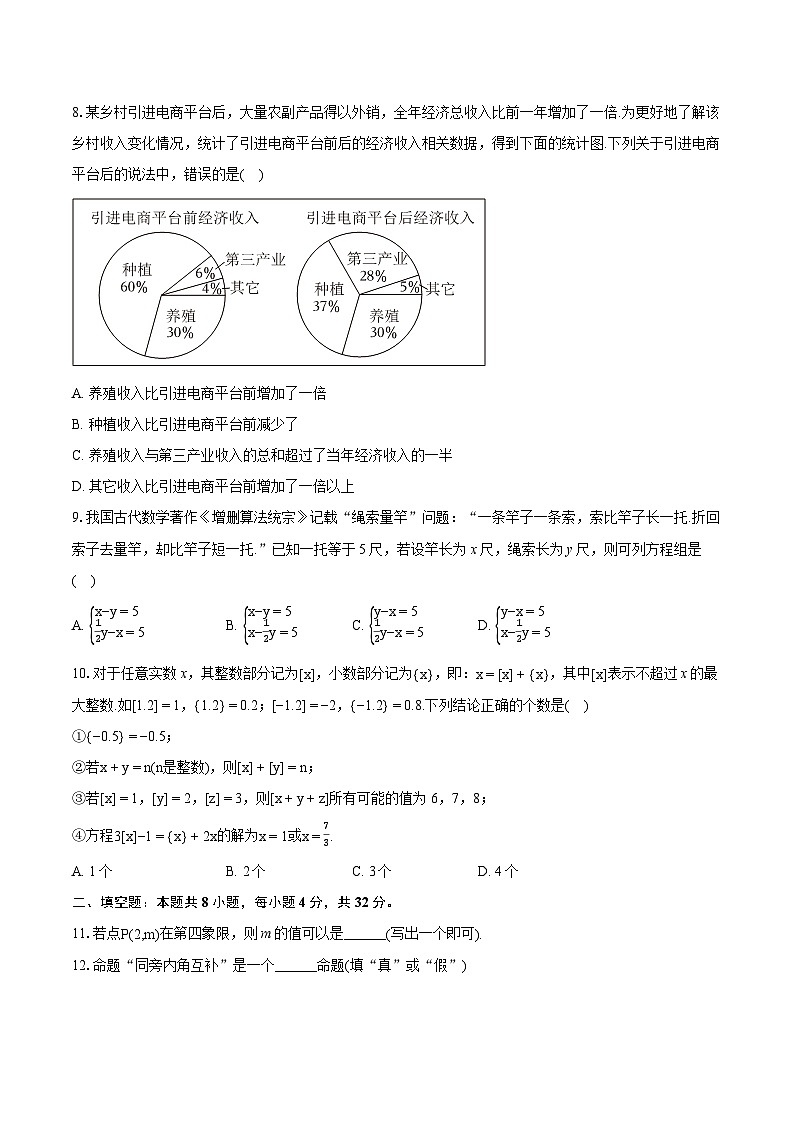 8. 某乡村引进电商平台后，大量农副产品得以外销，全年经济总收入比前一年增加了一倍.为更好地了解该
乡村收入变化情况，统计了引进电商平台前后的经济收入相关数据，得到下面的统计图.下列关于引进电商
平台后的说法中，错误的是(　)
引进电商平台前经济收入
种植
60%
6%
第三产业
4%
其它
养殖
30%
引进电商平台后经济收入
第三产业
28%
种植
37%
5%
其它
养殖
30%
A. 养殖收入比引进电商平台前增加了一倍
B. 种植收入比引进电商平台前减少了
C. 养殖收入与第三产业收入的总和超过了当年经济收入的一半
D. 其它收入比引进电商平台前增加了一倍以上
9. 我国古代数学著作《增删算法统宗》记载“绳索量竿”问题：“一条竿子一条索，索比竿子长一托.折回
索子去量竿，却比竿子短一托.”已知一托等于 5 尺，若设竿长为 x 尺，绳索长为 y 尺，则可列方程组是
(　)
A. {x−y = 5, 1/2y−x = 5　B. {x−y = 5, x−1/2y = 5　C. {y−x = 5, 1/2y−x = 5　D. {y−x = 5, x−1/2y = 5
10. 对于任意实数 x，其整数部分记为[x]，小数部分记为{x}，即：x = [x] + {x}，其中[x]表示不超过 x 的最
大整数.如[1.2] = 1，{1.2} = 0.2；[−1.2] = −2，{−1.2} = 0.8.下列结论正确的个数是(　)
①{−0.5} = −0.5；
②若x + y = n(n是整数)，则[x] + [y] = n；
③若[x] = 1，[y] = 2，[z] = 3，则[x + y + z]所有可能的值为 6，7，8；
④方程3[x]−1 = {x} + 2x的解为x = 1或x = 7/3.
A. 1 个　B. 2 个　C. 3 个　D. 4 个
二、填空题：本题共 8 小题，每小题 4 分，共 32 分。
11. 若点P(2,m)在第四象限，则 m 的值可以是______(写出一个即可).
12. 命题“同旁内角互补”是一个______命题(填“真”或“假”)